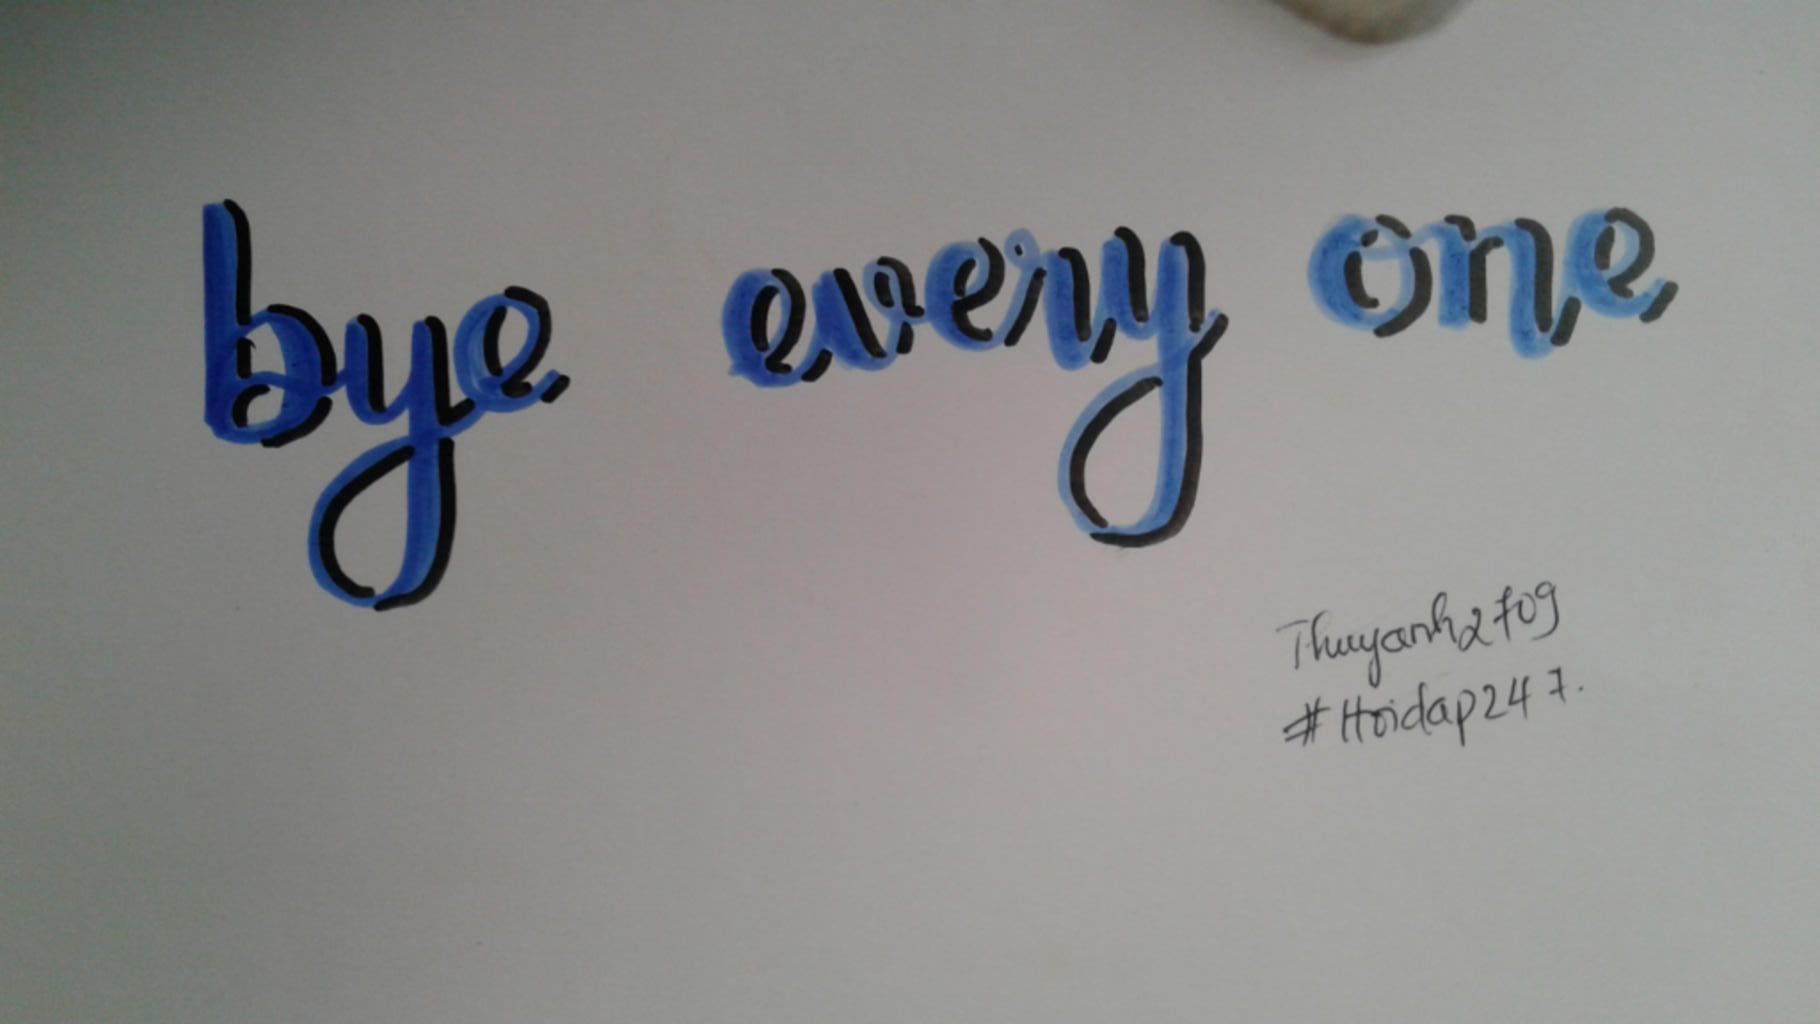 bye every one
Thuyanh2709
#Hoidap247.